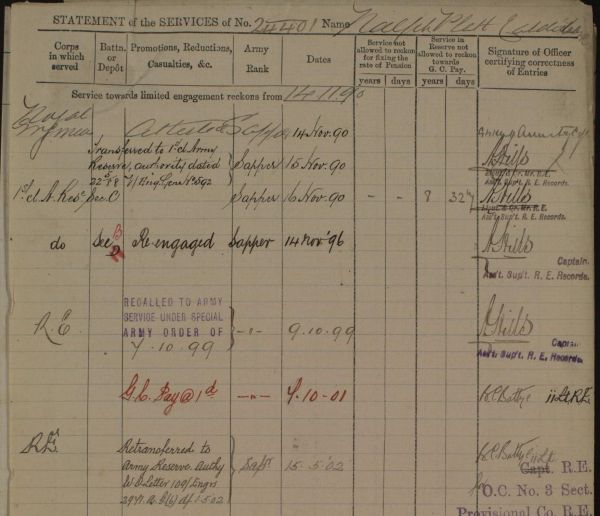 STATEMENT of the SERVICES of No. 24401 Name Ralph
Corps in which served
Battn. or Depôt
Promotions, Reductions, Casualties, &c.
Army Rank
Dates
Service not allowed to reckon for fixing the rate of Pension
years days
Service in Reserve not allowed to reckon towards G. C. Pay.
years days
Signature of Officer certifying correctness of Entries
Service towards limited engagement reckons from 14.11.90
Royal Engineers Attested Sapper 14 Nov. 90
Transferred to 1st cl Army
Reserve, authority dated Sapper 15 Nov. 90
Asst. Supt. R. E. Records.
1st cl A. Res. Sec. C Sapper 16 Nov. 90 - - 8 327
Asst. Supt. R. E. Records.
do Sec B D Re-engaged Sapper 14 Nov. 96
Captain.
Asst. Supt. R. E. Records.
R. E RECALLED TO ARMY
SERVICE UNDER SPECIAL
ARMY ORDER OF
7-10-99 -"- 9.10.99
Captain
Asst. Supt. R. E. Records.
G. C. Pay @ 1d -"- 9.10-01 Lt R.E.
RE Retransferred to
Army Reserve. Authy Sapr 15.5.02
W O Letter 109/Engrs
Capt. R.E.
O.C. No. 3 Sect.
Provisional Co. R.E.